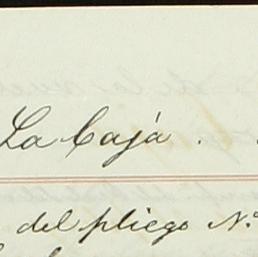 La Caja.
del pliego N.º